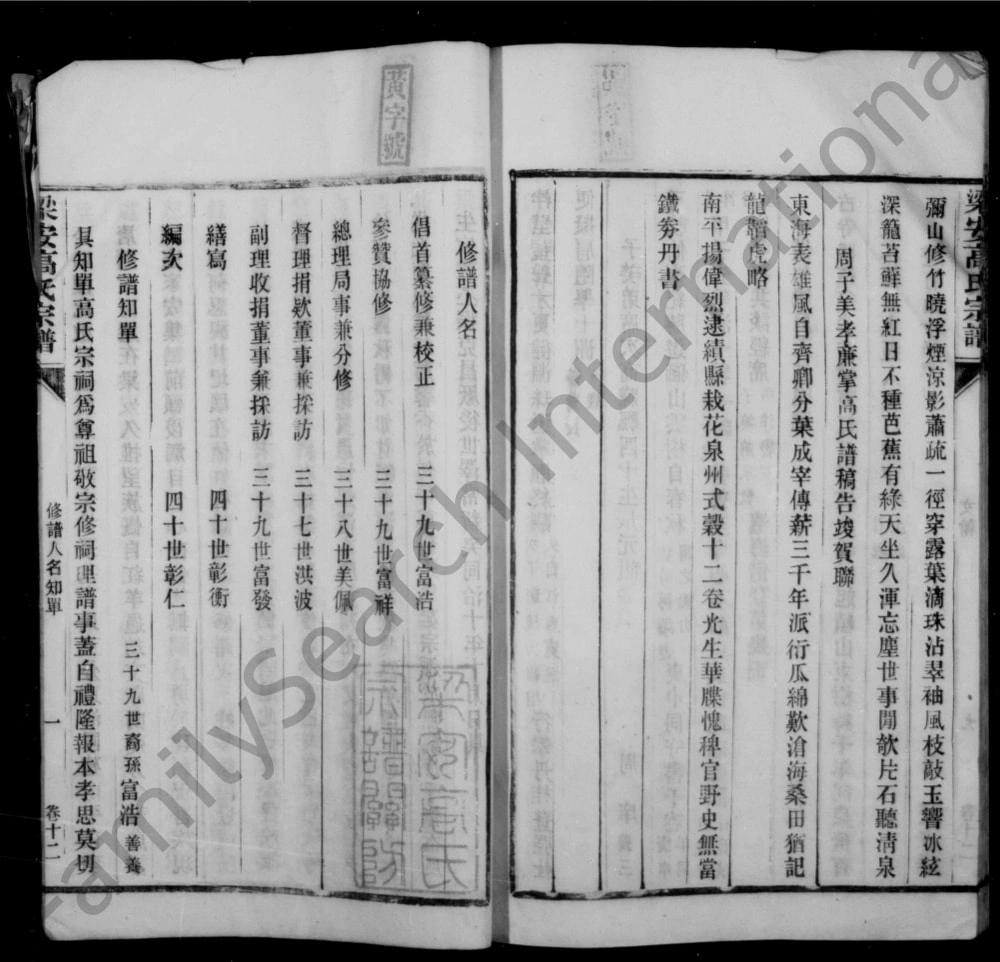 梁安高氏宗譜
彌山修竹曉浮煙涼影蕭疏一徑穿露葉滴珠沾翠袖風枝敲玉響冰絃
深籠苔鮮無紅日不種芭蕉有綠天坐久渾忘塵世事閒欹片石聽清泉
周子美孝廉掌高氏譜稿告竣賀聯
東海表雄風自齊卿分葉成宰傳薪三千年派衍瓜綿歎滄海桑田猶記
龍蟠虎略
南平揚偉烈逮績縣栽花泉州式穀十二卷光生華牒愧稗官野史無當
鐵券丹書
黃字號
修譜人名
倡首纂修兼校正 三十九世富浩
參贊協修 三十九世富祥
總理局事兼分修 三十八世美佩
督理捐欵董事兼採訪 三十七世淇波
副理收捐董事兼採訪 三十九世富發
繕寫 四十世彰衡
編次 四十世彰仁
修譜知單 三十九世裔孫富浩善養
具知單高氏宗祠為尊祖敬宗修祠理譜事蓋自禮隆報本孝思莫切
梁安高氏宗譜 修譜人名知單 一 卷十二
FamilySearch International